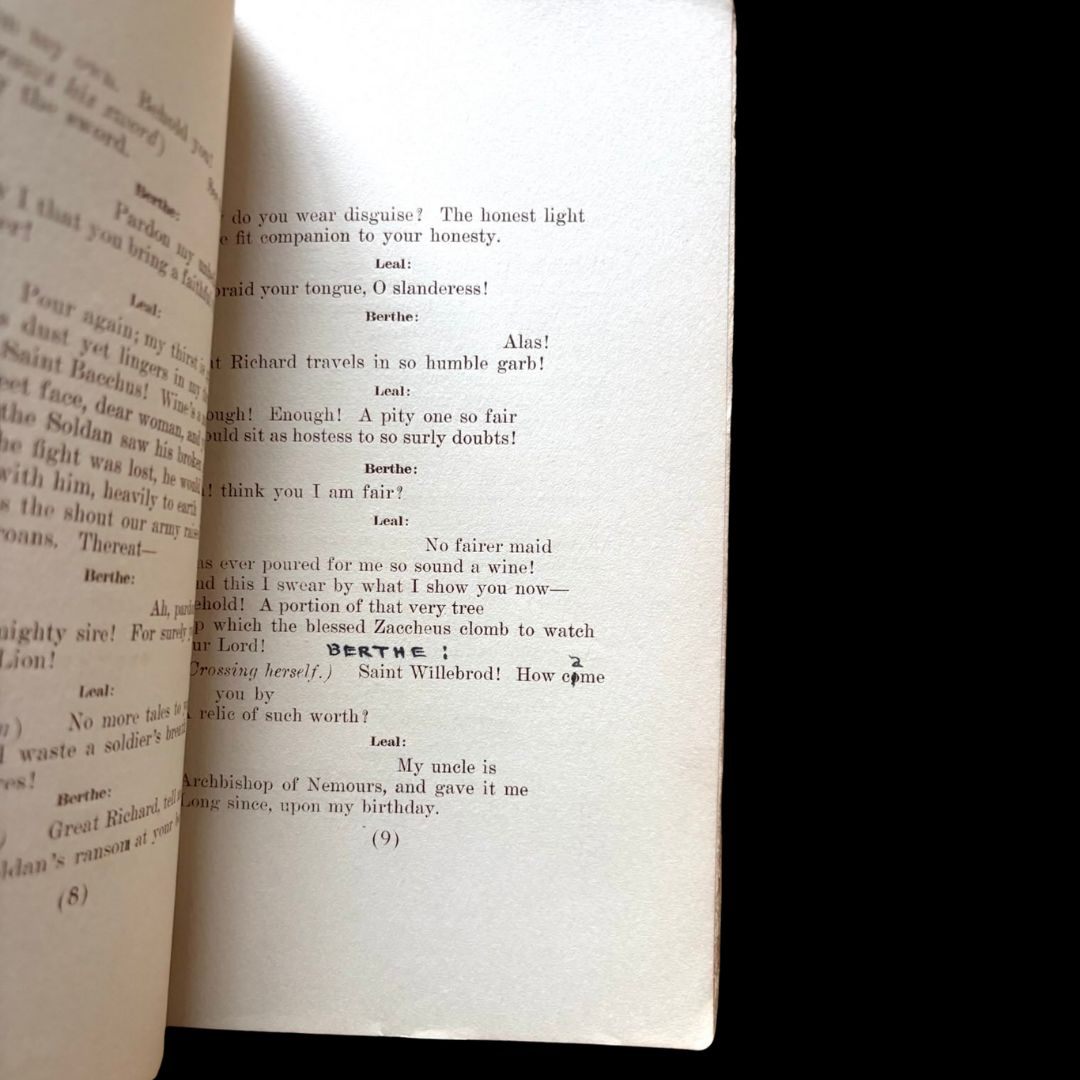 my own. Behold you!
his sword)
the sword.
Berthe:
Pardon my
I that you bring a faithful
Leal:
Pour again; my thirst is
dust yet lingers in my
Saint Bacchus! Wine's a
face, dear woman, and
the Soldan saw his broken
fight was lost, he would
with him, heavily to earth
the shout our army
Thereat—
Berthe:
Ah,
mighty sire! For surely
Lion!
Leal:
No more tales to
waste a soldier's breath
Berthe:
Great Richard, tell
ransom at your
(8)
do you wear disguise? The honest light
fit companion to your honesty.
Leal:
your tongue, O slanderess!
Berthe:
Alas!
Richard travels in so humble garb!
Leal:
Enough! A pity one so fair
sit as hostess to so surly doubts!
Berthe:
! think you I am fair?
Leal:
No fairer maid
ever poured for me so sound a wine!
this I swear by what I show you now—
A portion of that very tree
which the blessed Zaccheus clomb to watch
Lord!
BERTHE :
Crossing herself.) Saint Willebrod! How came
you by
relic of such worth?
Leal:
My uncle is
Archbishop of Nemours, and gave it me
Long since, upon my birthday.
(9)